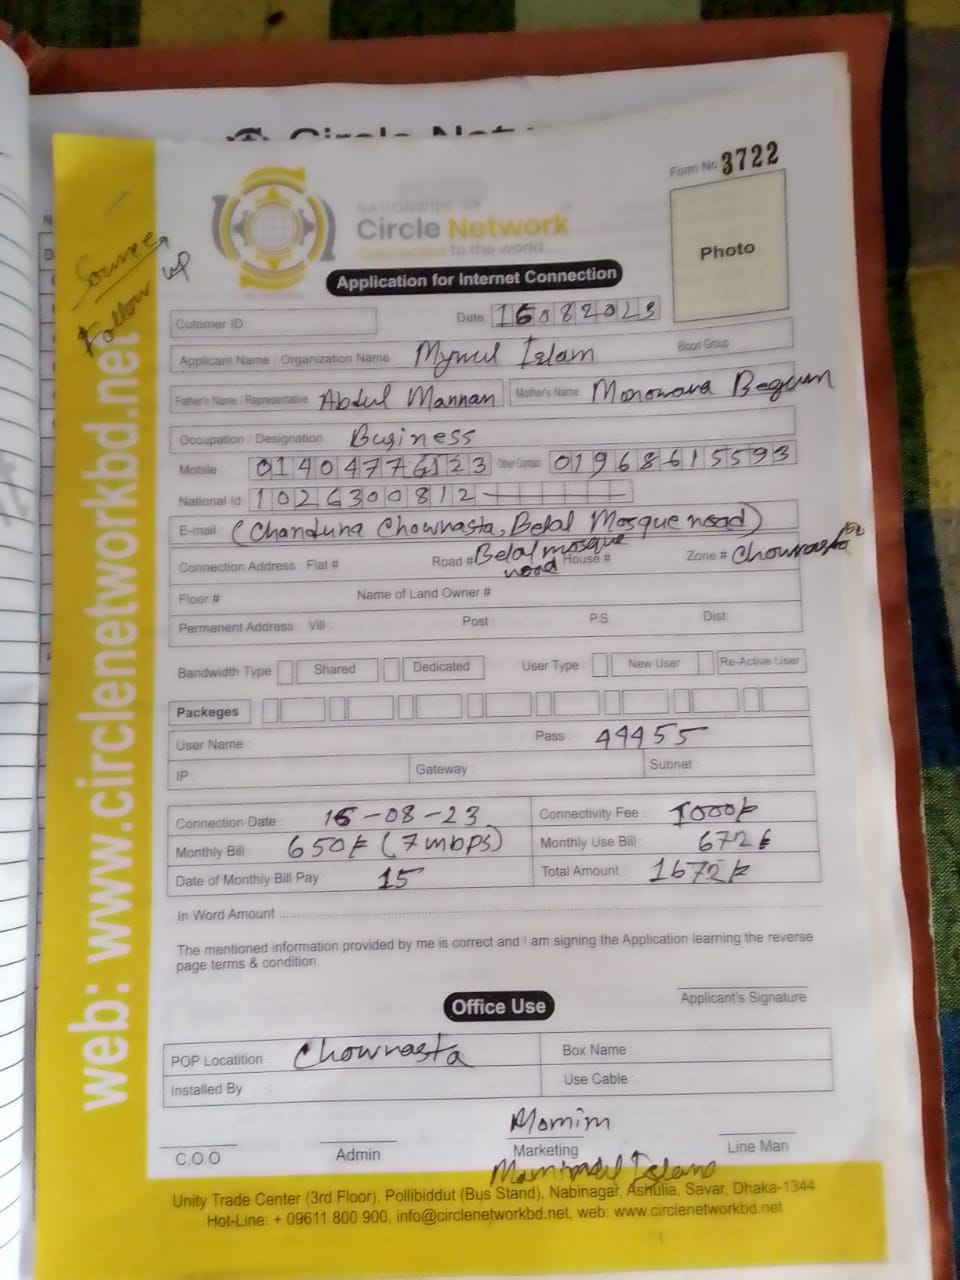 Circle Network
Form No 3722
NATIONWIDE ISP
Circle Network
Connected to the world...
Photo
Source
Follow up
Application for Internet Connection
Cutomer ID Date 16082023
Applicant Name / Organization Name : Mymul Islam Blood Group
Father's Name / Representative Abdul Mannan Mother's Name Monowara Begum
Occupation / Designation : Business
Mobile 01404776123 Other Contact 01968615593
National Id 1026300812
E-mail (Chanduna Chowrasta, Belal Mosque road)
Connection Address Flat # Road # Belal mosque road House # Zone # Chowrasta
Floor # Name of Land Owner #
Permanent Address : Vill : Post : P.S. Dist:
Bandwidth Type Shared Dedicated User Type New User Re-Active User
Packeges
User Name : Pass : 44455
IP Gateway Subnet
Connection Date : 16-08-23 Connectivity Fee : 1000
Monthly Bill : 650 (7 mbps) Monthly Use Bill 672
Date of Monthly Bill Pay : 15 Total Amount : 1672
In Word Amount :
The mentioned information provided by me is correct and I am signing the Application learning the reverse
page terms & condition.
Applicant's Signature
Office Use
POP Locatition : Chowrasta Box Name :
Installed By : Use Cable :
Momim
C.O.O Admin Marketing Line Man
Islam
Unity Trade Center (3rd Floor), Pollibiddut (Bus Stand), Nabinagar, Ashulia, Savar, Dhaka-1344
Hot-Line: + 09611 800 900, info@circlenetworkbd.net, web: www.circlenetworkbd.net
web: www.circlenetworkbd.net